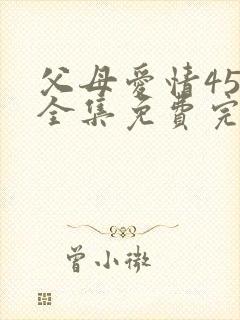 父母爱情45
全集免费完
曾小微